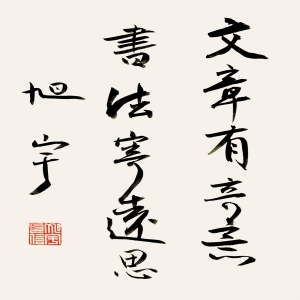 文章有奇意
書法寄遠思
旭宇